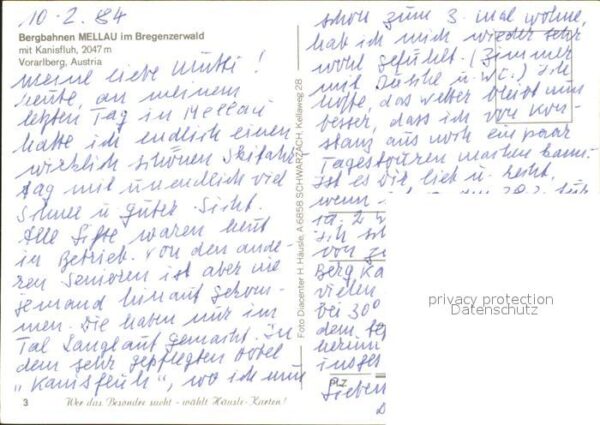 10.2.84
Bergbahnen MELLAU im Bregenzerwald
mit Kanisfluh, 2047 m
Vorarlberg, Austria
Meine liebe Mutti!
heute, an meinem
letzten Tag in Mellau
hatte ich endlich einen
wirklich schönen Skifahr-
tag mit unendlich viel
Schnee u. guter Sicht.
Alle Lifte waren heut
in Betrieb. Von den ande-
ren Senioren ist aber nie
jemand hinauf gekom-
men. Die haben nur im
Tal Langlauf gemacht. In
dem sehr gepflegten Hotel
"Kanisfluh", wo ich nun
3 Wer das Besondere sucht - wählt Häusle-Karten!
Foto Diacenter H. Häusle, A 6858 SCHWARZACH, Kellaweg 28
schon zum 3. mal wohne,
hab ich mich wieder sehr
wohl gefühlt. (Zimmer
mit Dusche u. WC.) Ich
hoffe, das Wetter bleibt nun
besser, dass ich von Kon-
stanz aus noch ein paar
Tagestouren machen kann.
Ist es Dir lieb u. recht,
wenn
Ich
von
Berg Ka
vielen
bei 30°
dem
herum
insge
PLZ
Sieben
privacy protection
Datenschutz